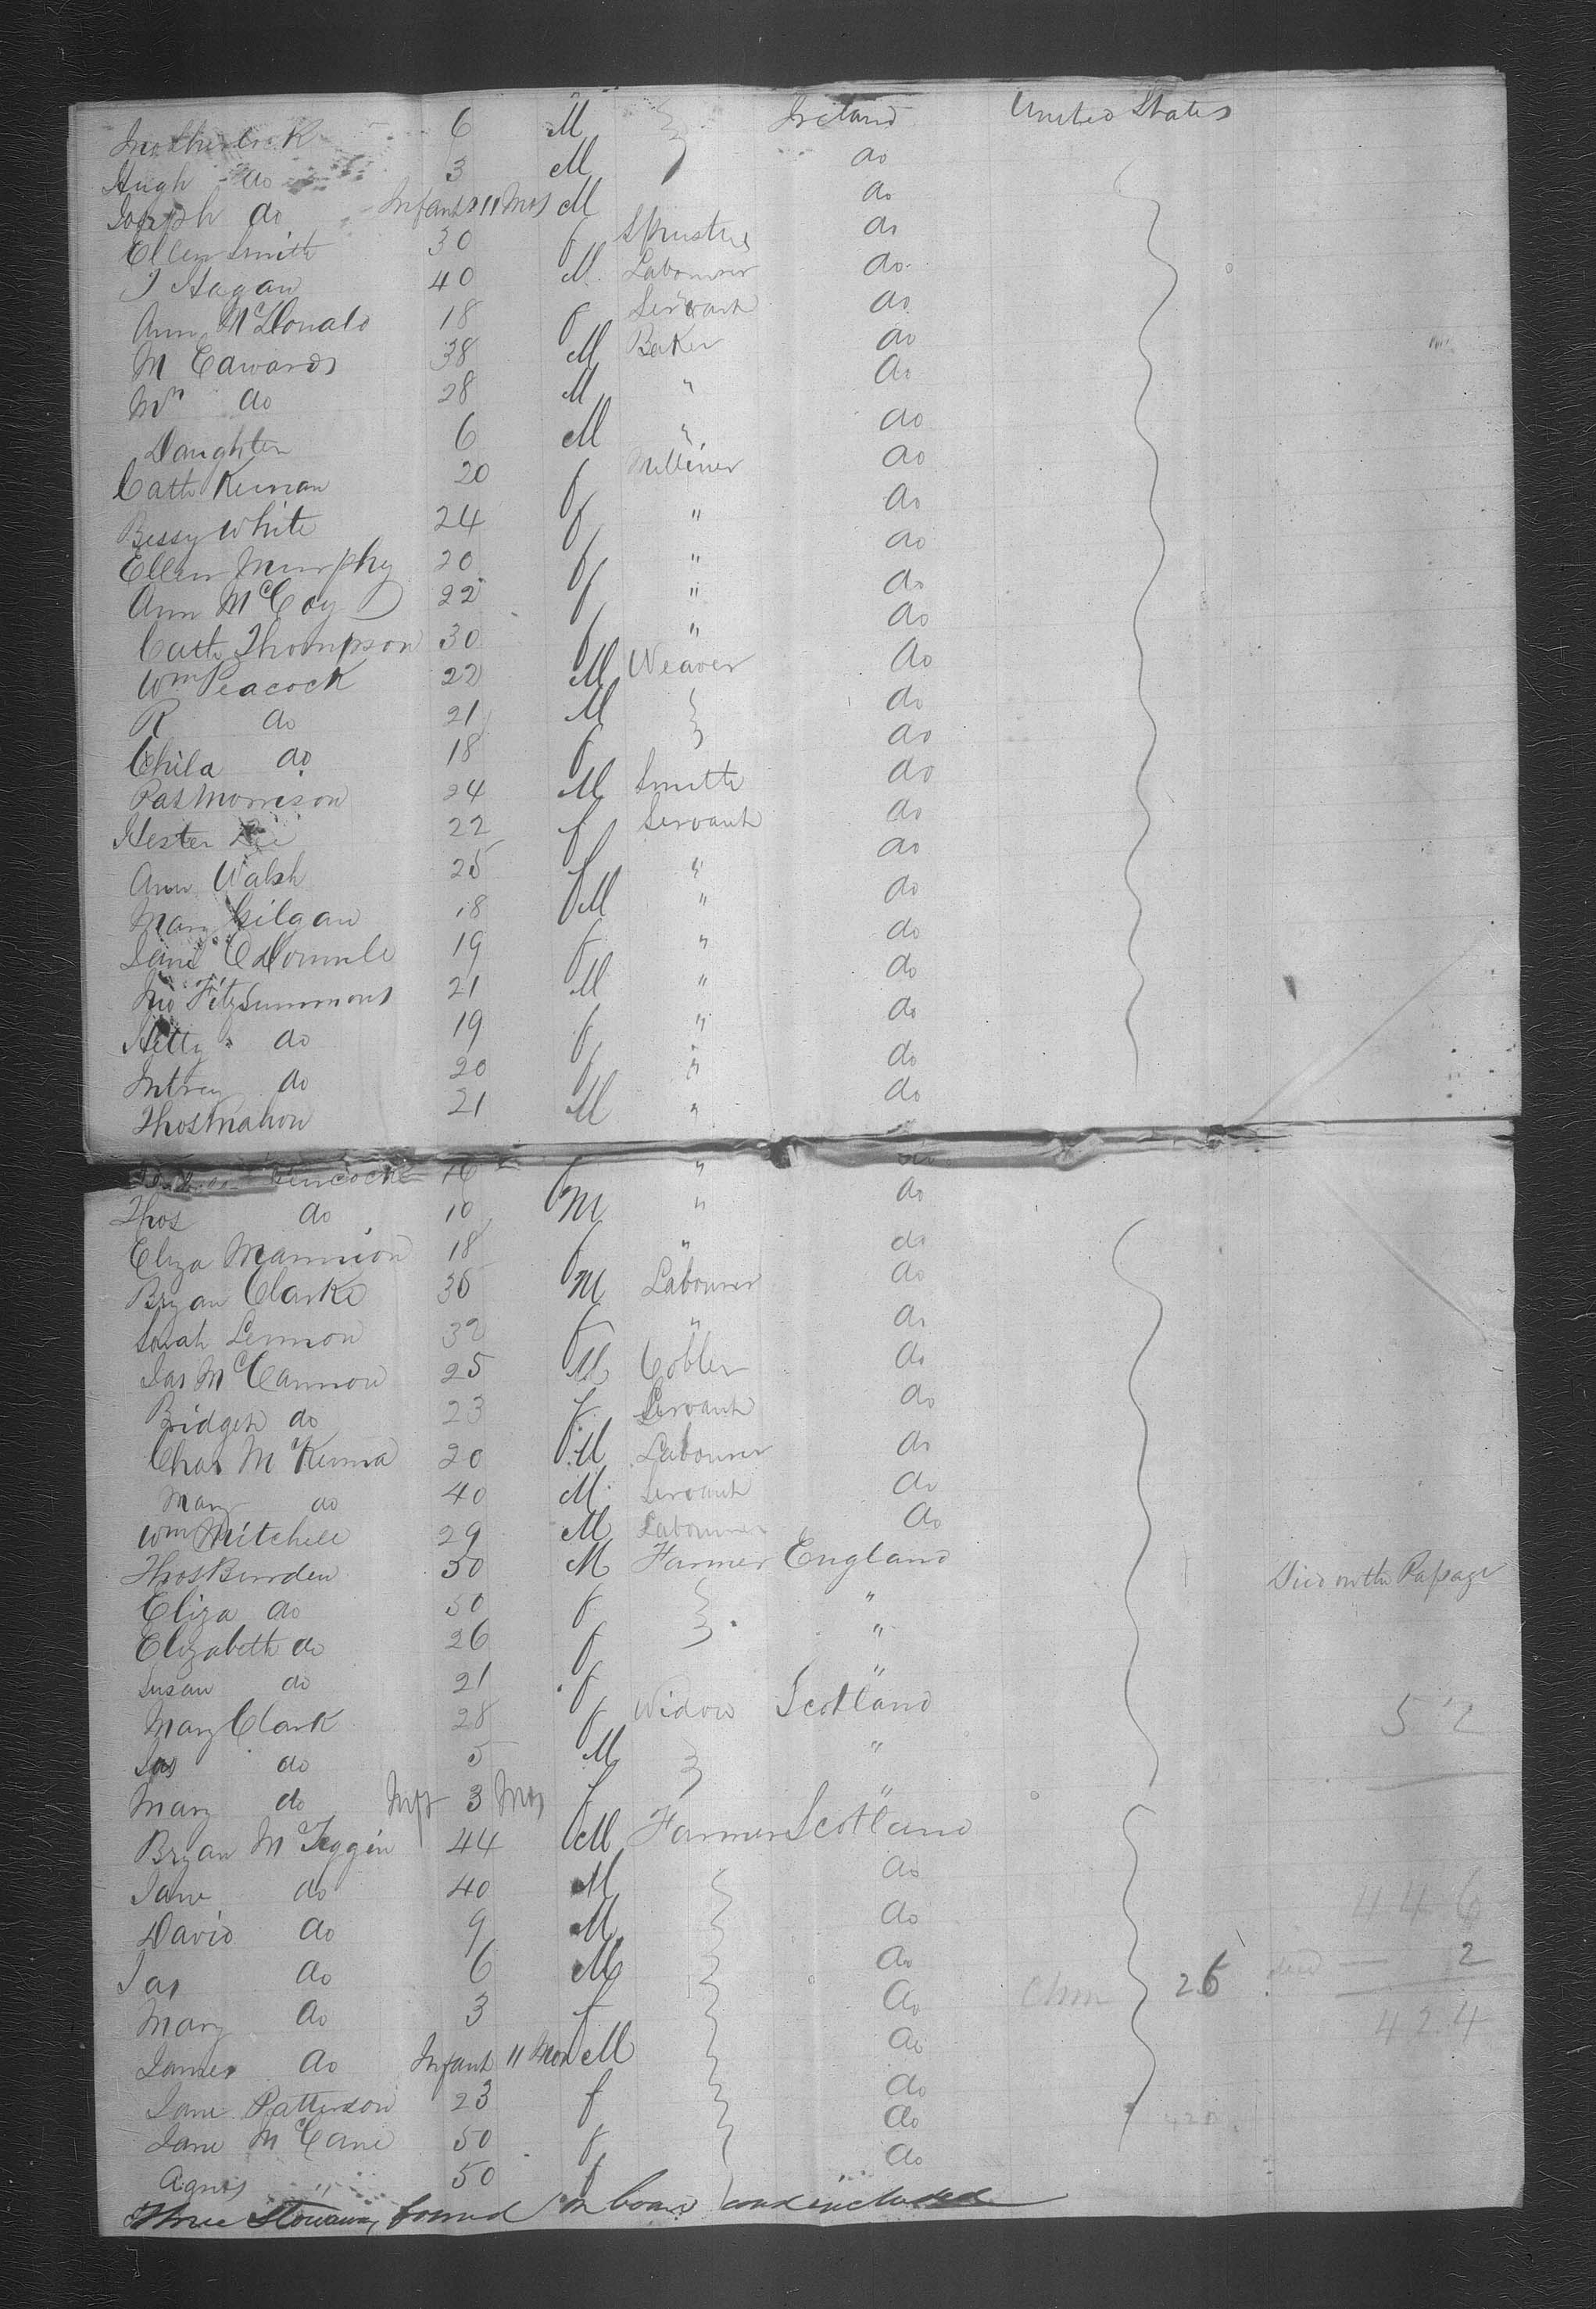 Jno Sherlock 6 M } Ireland United States
Hugh do 3 M do
Joseph do Infant 11 Mos M do
Ellen Smith 30 f Spinster do
J Hagan 40 M Labourer do
Ann McDonald 18 f Servant do
M Edwards 38 M Baker do
Mrs do 28 M " do
Daughter 6 M " do
Cath Kernan 20 f Milliner do
Bessy White 24 f " do
Ellen Murphy 20 f " do
Ann McCoy 22 f " do
Cath Thompson 30 f " do
Wm Peacock 22 M Weaver do
R do 21 M } do
Child do 18 f do
Pat Morrison 24 M Smith do
Hester 22 f Servant do
Ann Walsh 25 f " do
Mary Gilgan 18 M " do
Jane O Donnele 19 f " do
Jno Fitzsimmons 21 M " do
Hetty do 19 f " do
do 20 f " do
Thos Mahon 21 M " do
16 f " do
Thos do 10 M " do
Eliza Mannion 18 f " do
Bryan Clarke 36 M Labourer do
Sarah Lennon 32 f " do
Jas McCannon 25 M Cobler do
Bridget do 23 f Servant do
Chas McKenna 20 M Labourer do
Mary do 40 M Servant do
Wm Mitchell 29 M Labourer do
Thos Burden 50 M Farmer England Died on the Passage
Eliza do 50 f } "
Elizabeth do 26 f "
Susan do 21 f "
Mary Clark 28 f Widow Scotland 52
Jas do 5 M } "
Mary do Inft 3 Mos f "
Bryan McTeggin 44 M Farmer Scotland
Jane do 40 M } do
David do 9 M do 446
Jas do 6 M do 26 died — 2
Mary do 3 f do 424
James do Infant 11 Mos M do
Jane Patterson 23 f do
Jane McCane 50 f do
Agnes " 50 f do
Three Stowaways found on board and included